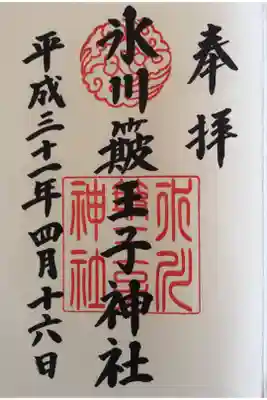 奉拝
氷川簸王子神社
平成三十一年四月十六日
氷川
神社